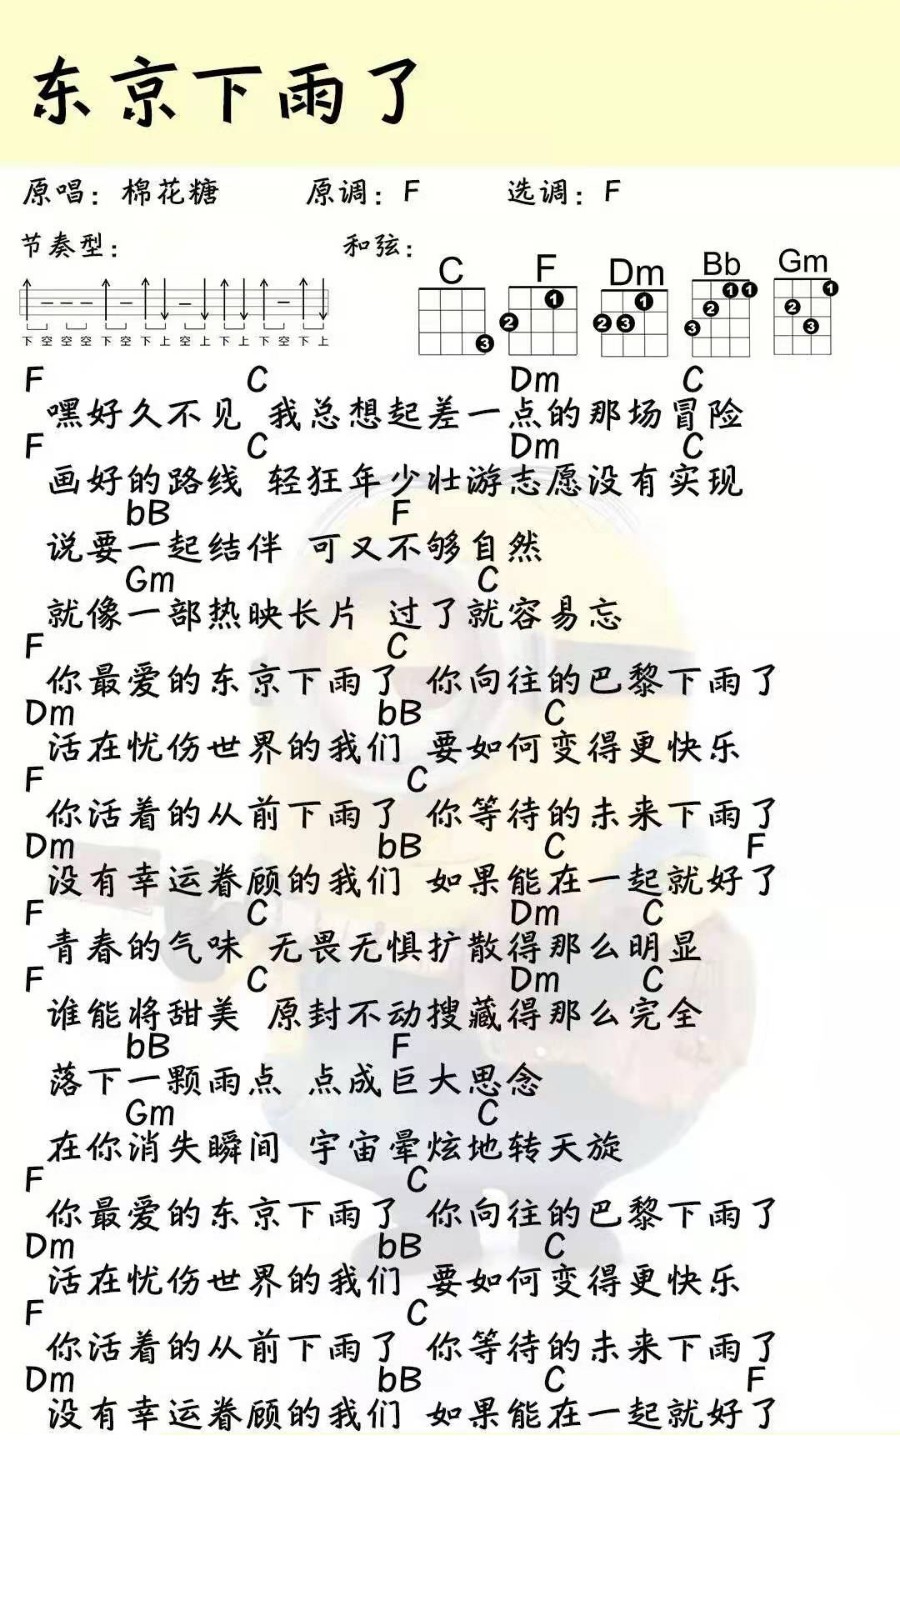 东京下雨了
原唱：棉花糖 原调：F 选调：F
节奏型： 和弦：
C F Dm Bb Gm
下 空 空 空 下 空 下 上 空 上 下 上 下 空 下 上
F C Dm C
嘿好久不见 我总想起差一点的那场冒险
F C Dm C
画好的路线 轻狂年少壮游志愿没有实现
bB F
说要一起结伴 可又不够自然
Gm C
就像一部热映长片 过了就容易忘
F C
你最爱的东京下雨了 你向往的巴黎下雨了
Dm bB C
活在忧伤世界的我们 要如何变得更快乐
F C
你活着的从前下雨了 你等待的未来下雨了
Dm bB C F
没有幸运眷顾的我们 如果能在一起就好了
F C Dm C
青春的气味 无畏无惧扩散得那么明显
F C Dm C
谁能将甜美 原封不动搜藏得那么完全
bB F
落下一颗雨点 点成巨大思念
Gm C
在你消失瞬间 宇宙晕炫地转天旋
F C
你最爱的东京下雨了 你向往的巴黎下雨了
Dm bB C
活在忧伤世界的我们 要如何变得更快乐
F C
你活着的从前下雨了 你等待的未来下雨了
Dm bB C F
没有幸运眷顾的我们 如果能在一起就好了